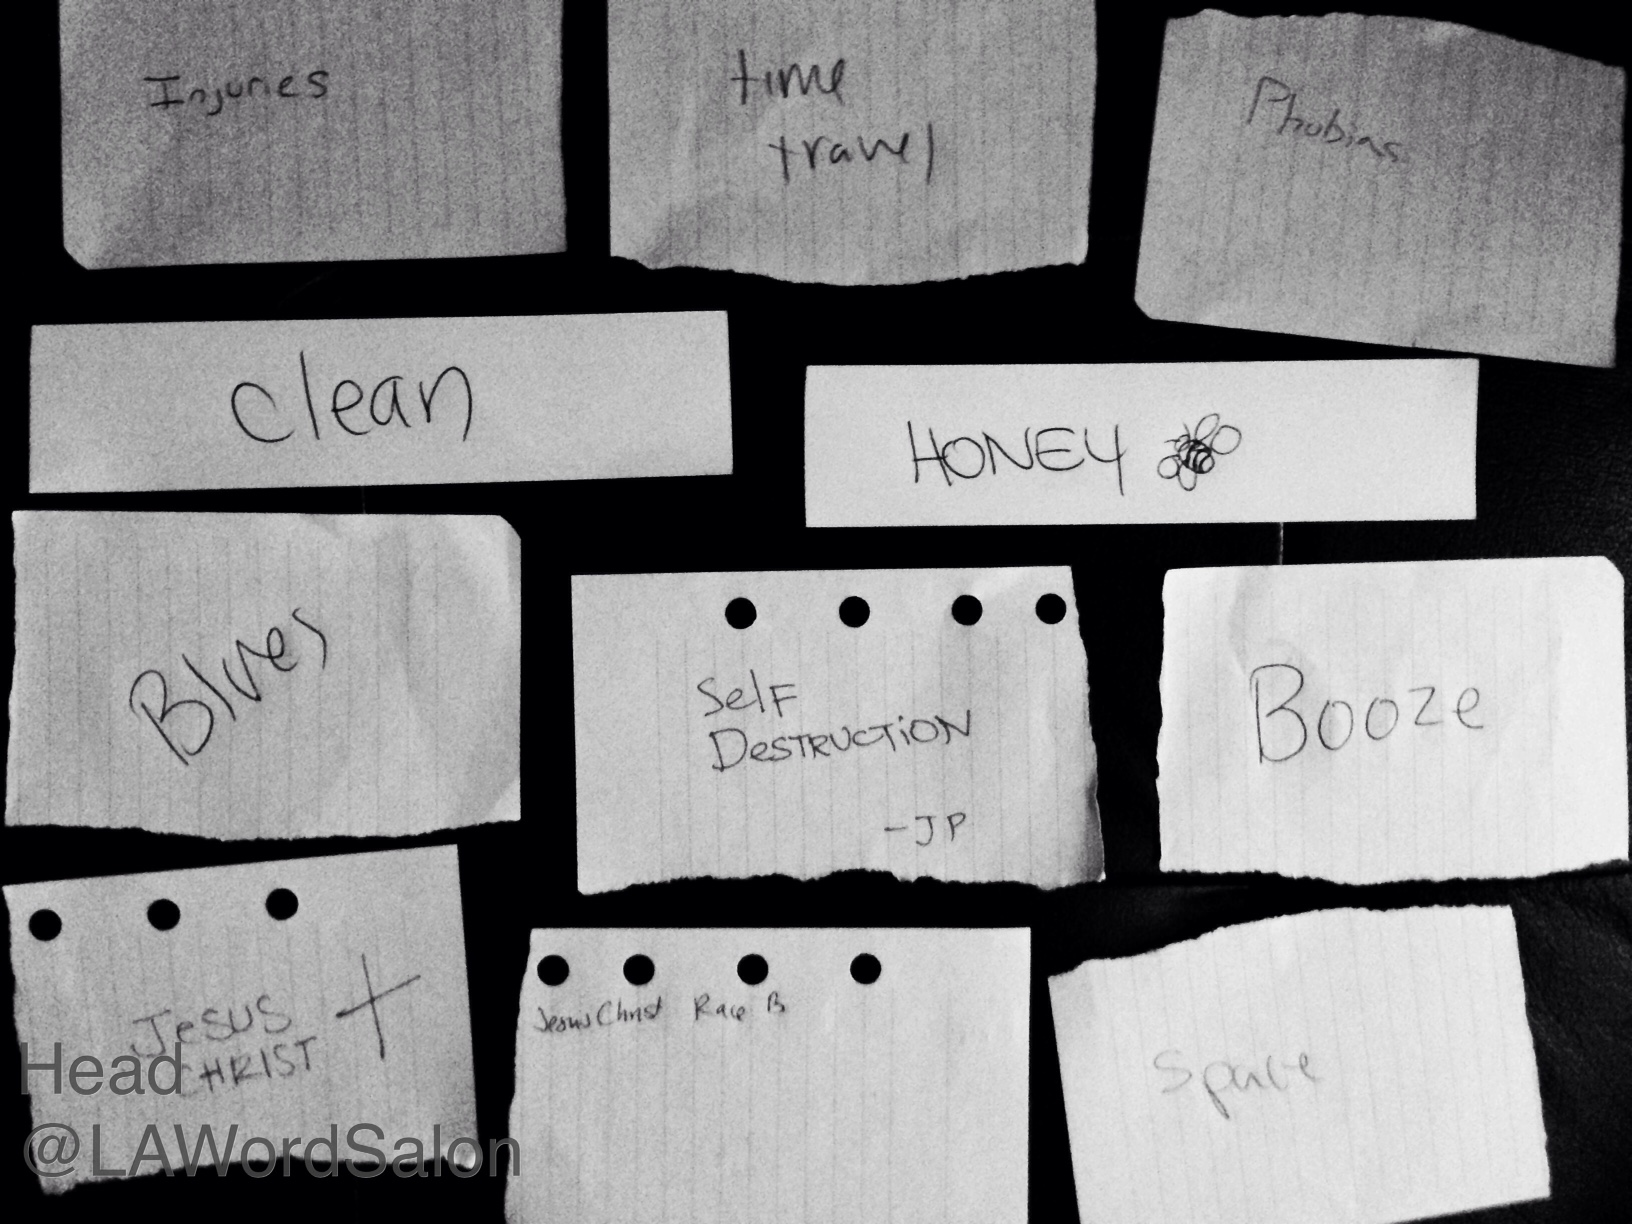 Injuries
time
travel
Phobias
clean
HONEY
Blues
Self
DESTRUCTION
-JP
Booze
JESUS
CHRIST
Jesus Christ Race B
Space
Head
@LAWordSalon